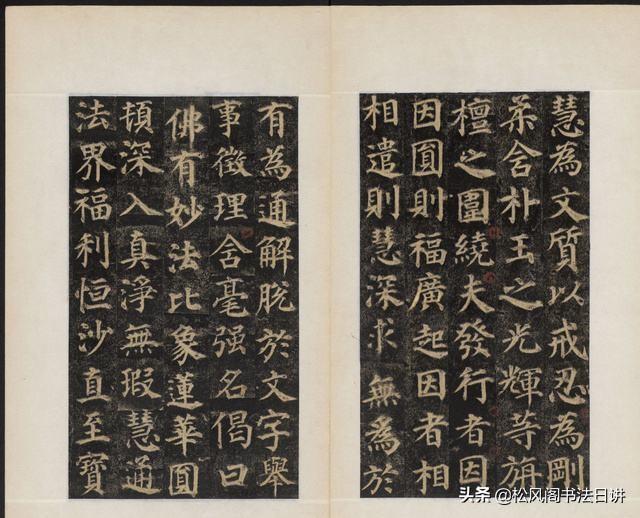 慧為文質以戒忍為剛
柔含朴玉之光輝等旃
檀之圍繞夫發行者因
因圓則福廣起因者相
相遣則慧深求無為於
有為通解脫於文字舉
事徵理含毫強名偈曰
佛有妙法比象蓮華圓
頓深入真淨無瑕慧通
法界福利恒沙直至寶
头条 @松风阁书法日讲